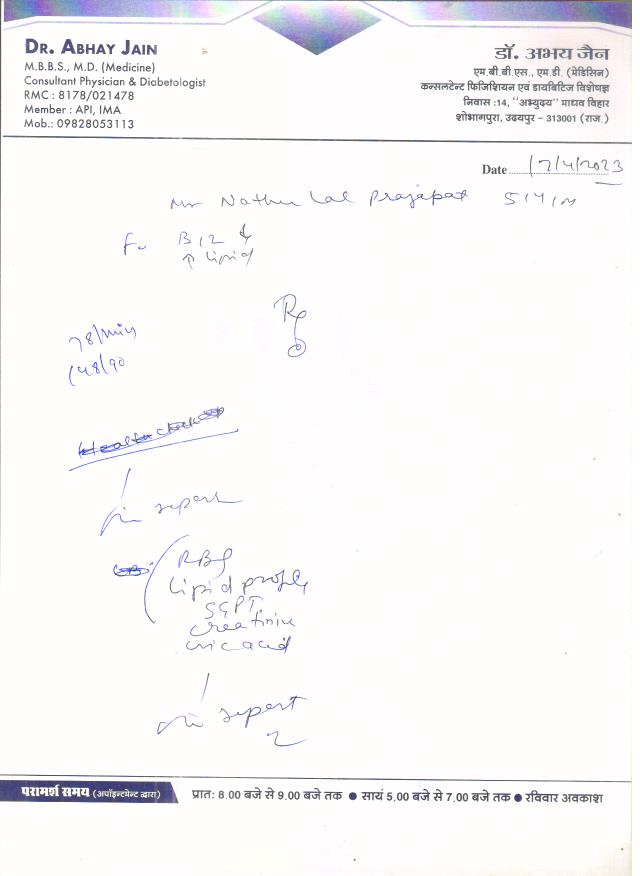 DR. ABHAY JAIN
M.B.B.S., M.D. (Medicine)
Consultant Physician & Diabetologist
RMC : 8178/021478
Member : API, IMA
Mob.: 09828053113
डॉ. अभय जैन
एम.बी.बी.एस., एम.डी. (मेडिसिन)
कन्सलटेन्ट फिजिशियन एवं डायबिटिज विशेषज्ञ
निवास :14, "अभ्युदय" माधव विहार
शोभागपुरा, उदयपुर – 313001 (राज.)
Date 17/4/2023
Mr Nathu Lal Prajapat 51y/m
B12 &
↑ lipid
Rx
78/min
148/90
report
RBS
Lipid profile
SGPT
Creatinine
uric acid
report
परामर्श समय (अपॉइन्टमेन्ट द्वारा) प्रातः 8.00 बजे से 9.00 बजे तक ● सायं 5.00 बजे से 7.00 बजे तक ● रविवार अवकाश